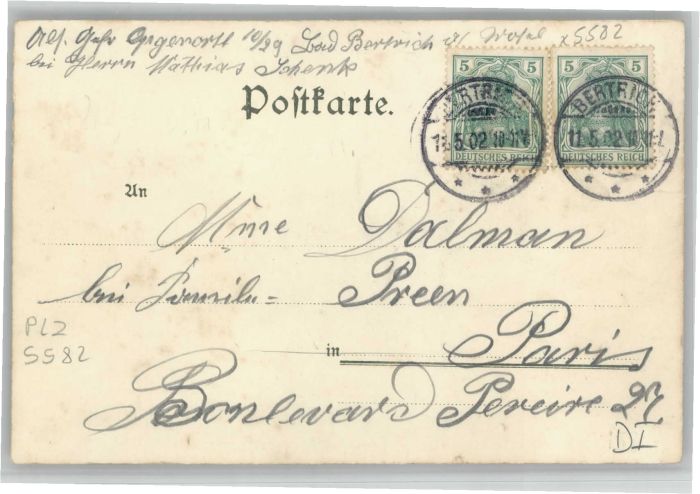 Bad Bertrich x5582
bei Herrn Mathias Schenk
Postkarte.
5 5 5 5
BERTRICH BERTRICH
11.5.02 10-11V 11.5.02 10-11V
DEUTSCHES REICH DEUTSCHES REICH
An
Mme Dalman
bei Familie Preen
PLZ
5582
in Paris
Boulevard Pereire 27
DI